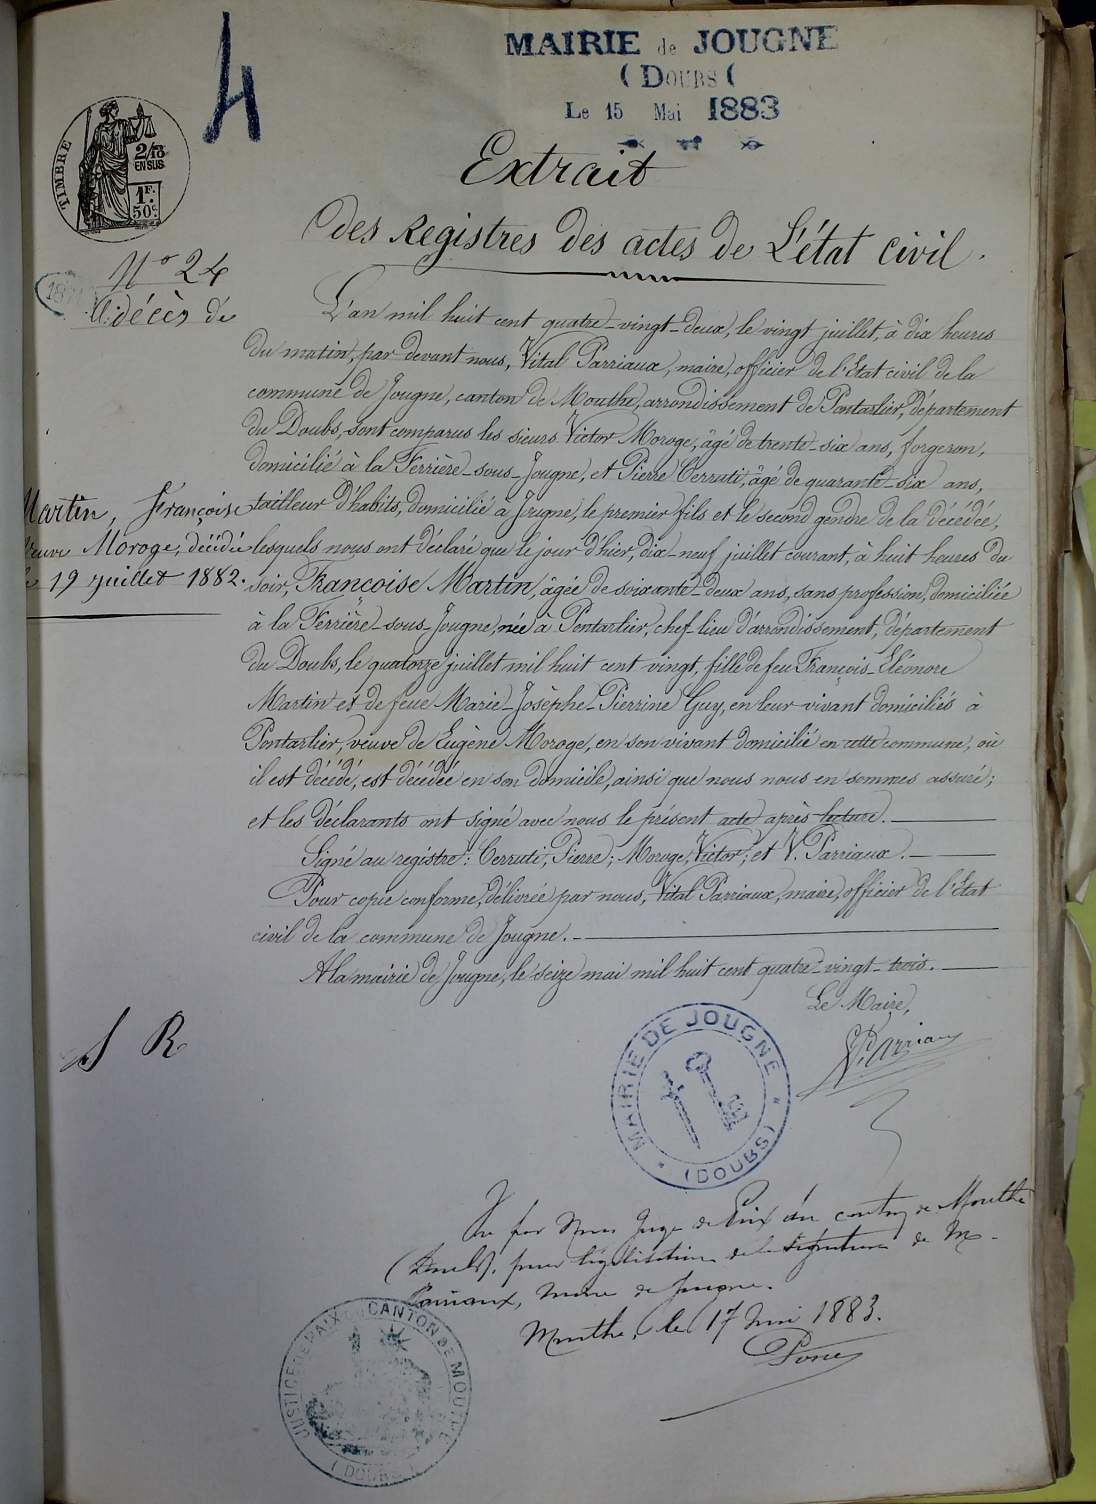 MAIRIE de JOUGNE
(DOUBS(
Le 15 Mai 1883
4
TIMBRE
2/10
EN SUS
1F.
50c.
Extrait
des Registres des actes de L'état civil.
No 24
décès de
L'an mil huit cent quatre-vingt-deux, le vingt juillet, à dix heures
du matin, par devant nous, Vital Parriaux, maire, officier de l'Etat civil de la
commune de Jougne, canton de Mouthe, arrondissement de Pontarlier, département
du Doubs, sont comparus les sieurs Victor Moroge, âgé de trente-six ans, forgeron,
domicilié à la Ferrière-sous-Jougne, et Pierre Cerruti, âgé de quarante-six ans,
tailleur d'habits, domicilié à Jougne, le premier fils et le second gendre de la décédée,
lesquels nous ont déclaré que le jour d'hier, dix-neuf juillet courant, à huit heures du
soir, Françoise Martin, âgée de soixante-deux ans, sans profession, domiciliée
à la Ferrière-sous-Jougne, née à Pontarlier, chef-lieu d'arrondissement, département
du Doubs, le quatorze juillet mil huit cent vingt, fille de feu François-Eléonore
Martin et de feue Marie-Josèphe-Pierrine Guy, en leur vivant domiciliés à
Pontarlier, veuve de Eugène Moroge, en son vivant domicilié en cette commune, où
il est décédé, est décédée en son domicile, ainsi que nous nous en sommes assuré;
et les déclarants ont signé avec nous le présent acte après lecture.
Signé au registre: Cerruti, Pierre; Moroge, Victor; et V. Parriaux.
Pour copie conforme, délivrée par nous, Vital Parriaux, maire, officier de l'Etat
civil de la commune de Jougne.
A la mairie de Jougne, le seize mai mil huit cent quatre-vingt-trois.
Martin, Françoise
veuve Moroge, décédée
le 19 juillet 1882.
Le Maire,
V. Parriaux
MAIRIE DE JOUGNE
(DOUBS)
R
Vu par Nous Juge de Paix du canton de Mouthe
(Doubs), pour légalisation de la signature de M.
Parriaux, Maire de Jougne.
Mouthe, le 17 Mai 1883.
JUSTICE DE PAIX DU CANTON DE MOUTHE
(DOUBS)